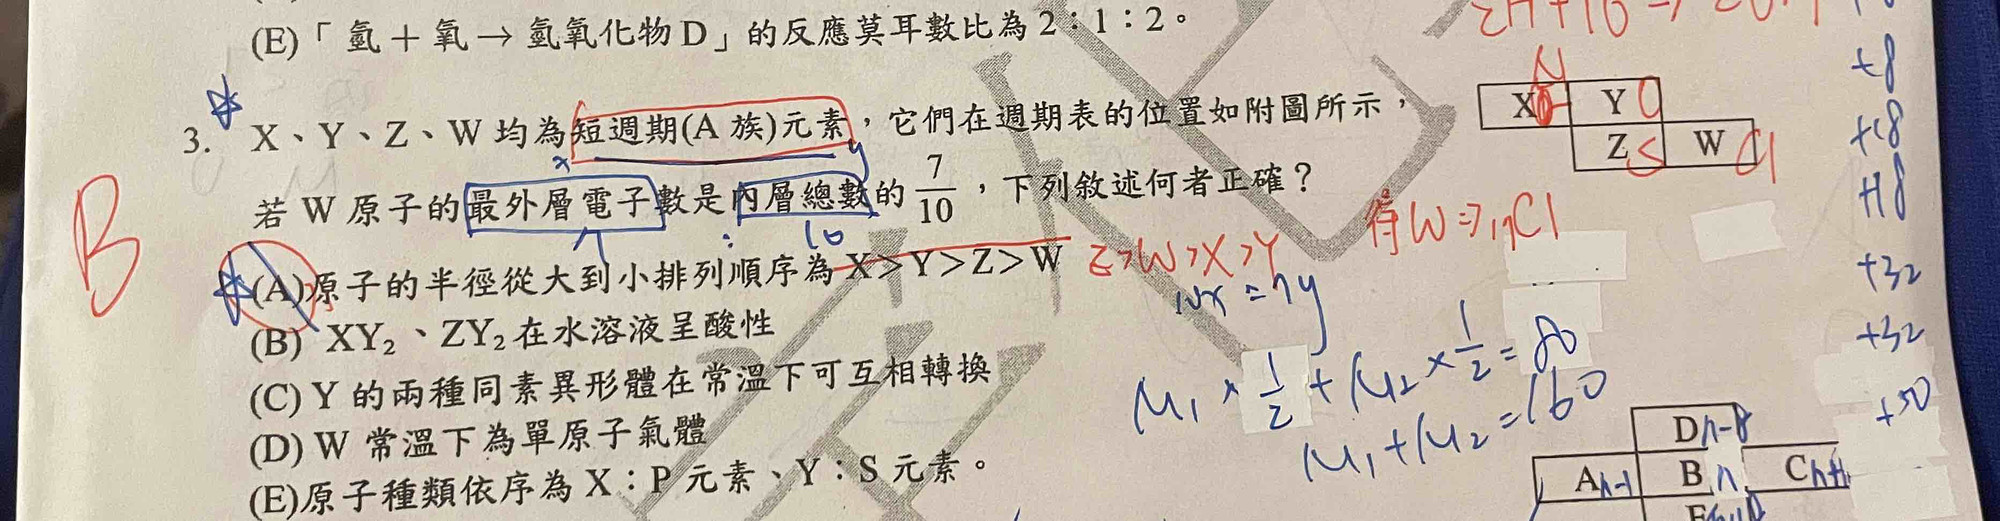 (E)「氫＋氧→氫氧化物D」的反應莫耳數比為2：1：2。
3. X、Y、Z、W均為短週期(A族)元素，它們在週期表的位置如附圖所示，
若W原子的最外層電子數是內層總數的 7/10，下列敘述何者正確？
(A)原子的半徑從大到小排列順序為X>Y>Z>W Z>W>X>Y
(B) XY₂、ZY₂在水溶液呈酸性
(C) Y的兩種同素異形體在常溫下可互相轉換
(D) W常溫下為單原子氣體
(E)原子種類依序為X：P元素、Y：S元素。
B
x
y
7
:
10
N
X Y O
Z S W Cl
得W⇒17Cl
10x=7y
M₁×1/2+M₂×1/2=80
M₁+M₂=160
+8
+18
+18
+32
+32
+50
D n-8
A n-1 B n C n+1